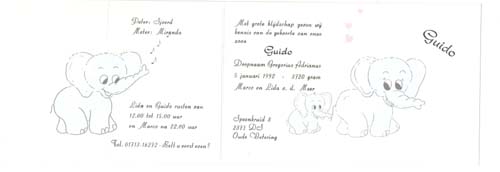 Peter: Sjoerd
Meter: Miranda
Lida en Guido rusten van
12.00 tot 15.00 uur
en Marco na 22.00 uur
Tel. 01713-16232 - Belt u eerst even!
Met grote blijdschap geven wij
kennis van de geboorte van onze
zoon
Guido
Doopnaam Gregorius Adrianus
5 januari 1992 - 3520 gram
Marco en Lida v. d. Meer
Spaenkuid 8
Oude Wetering
Guido